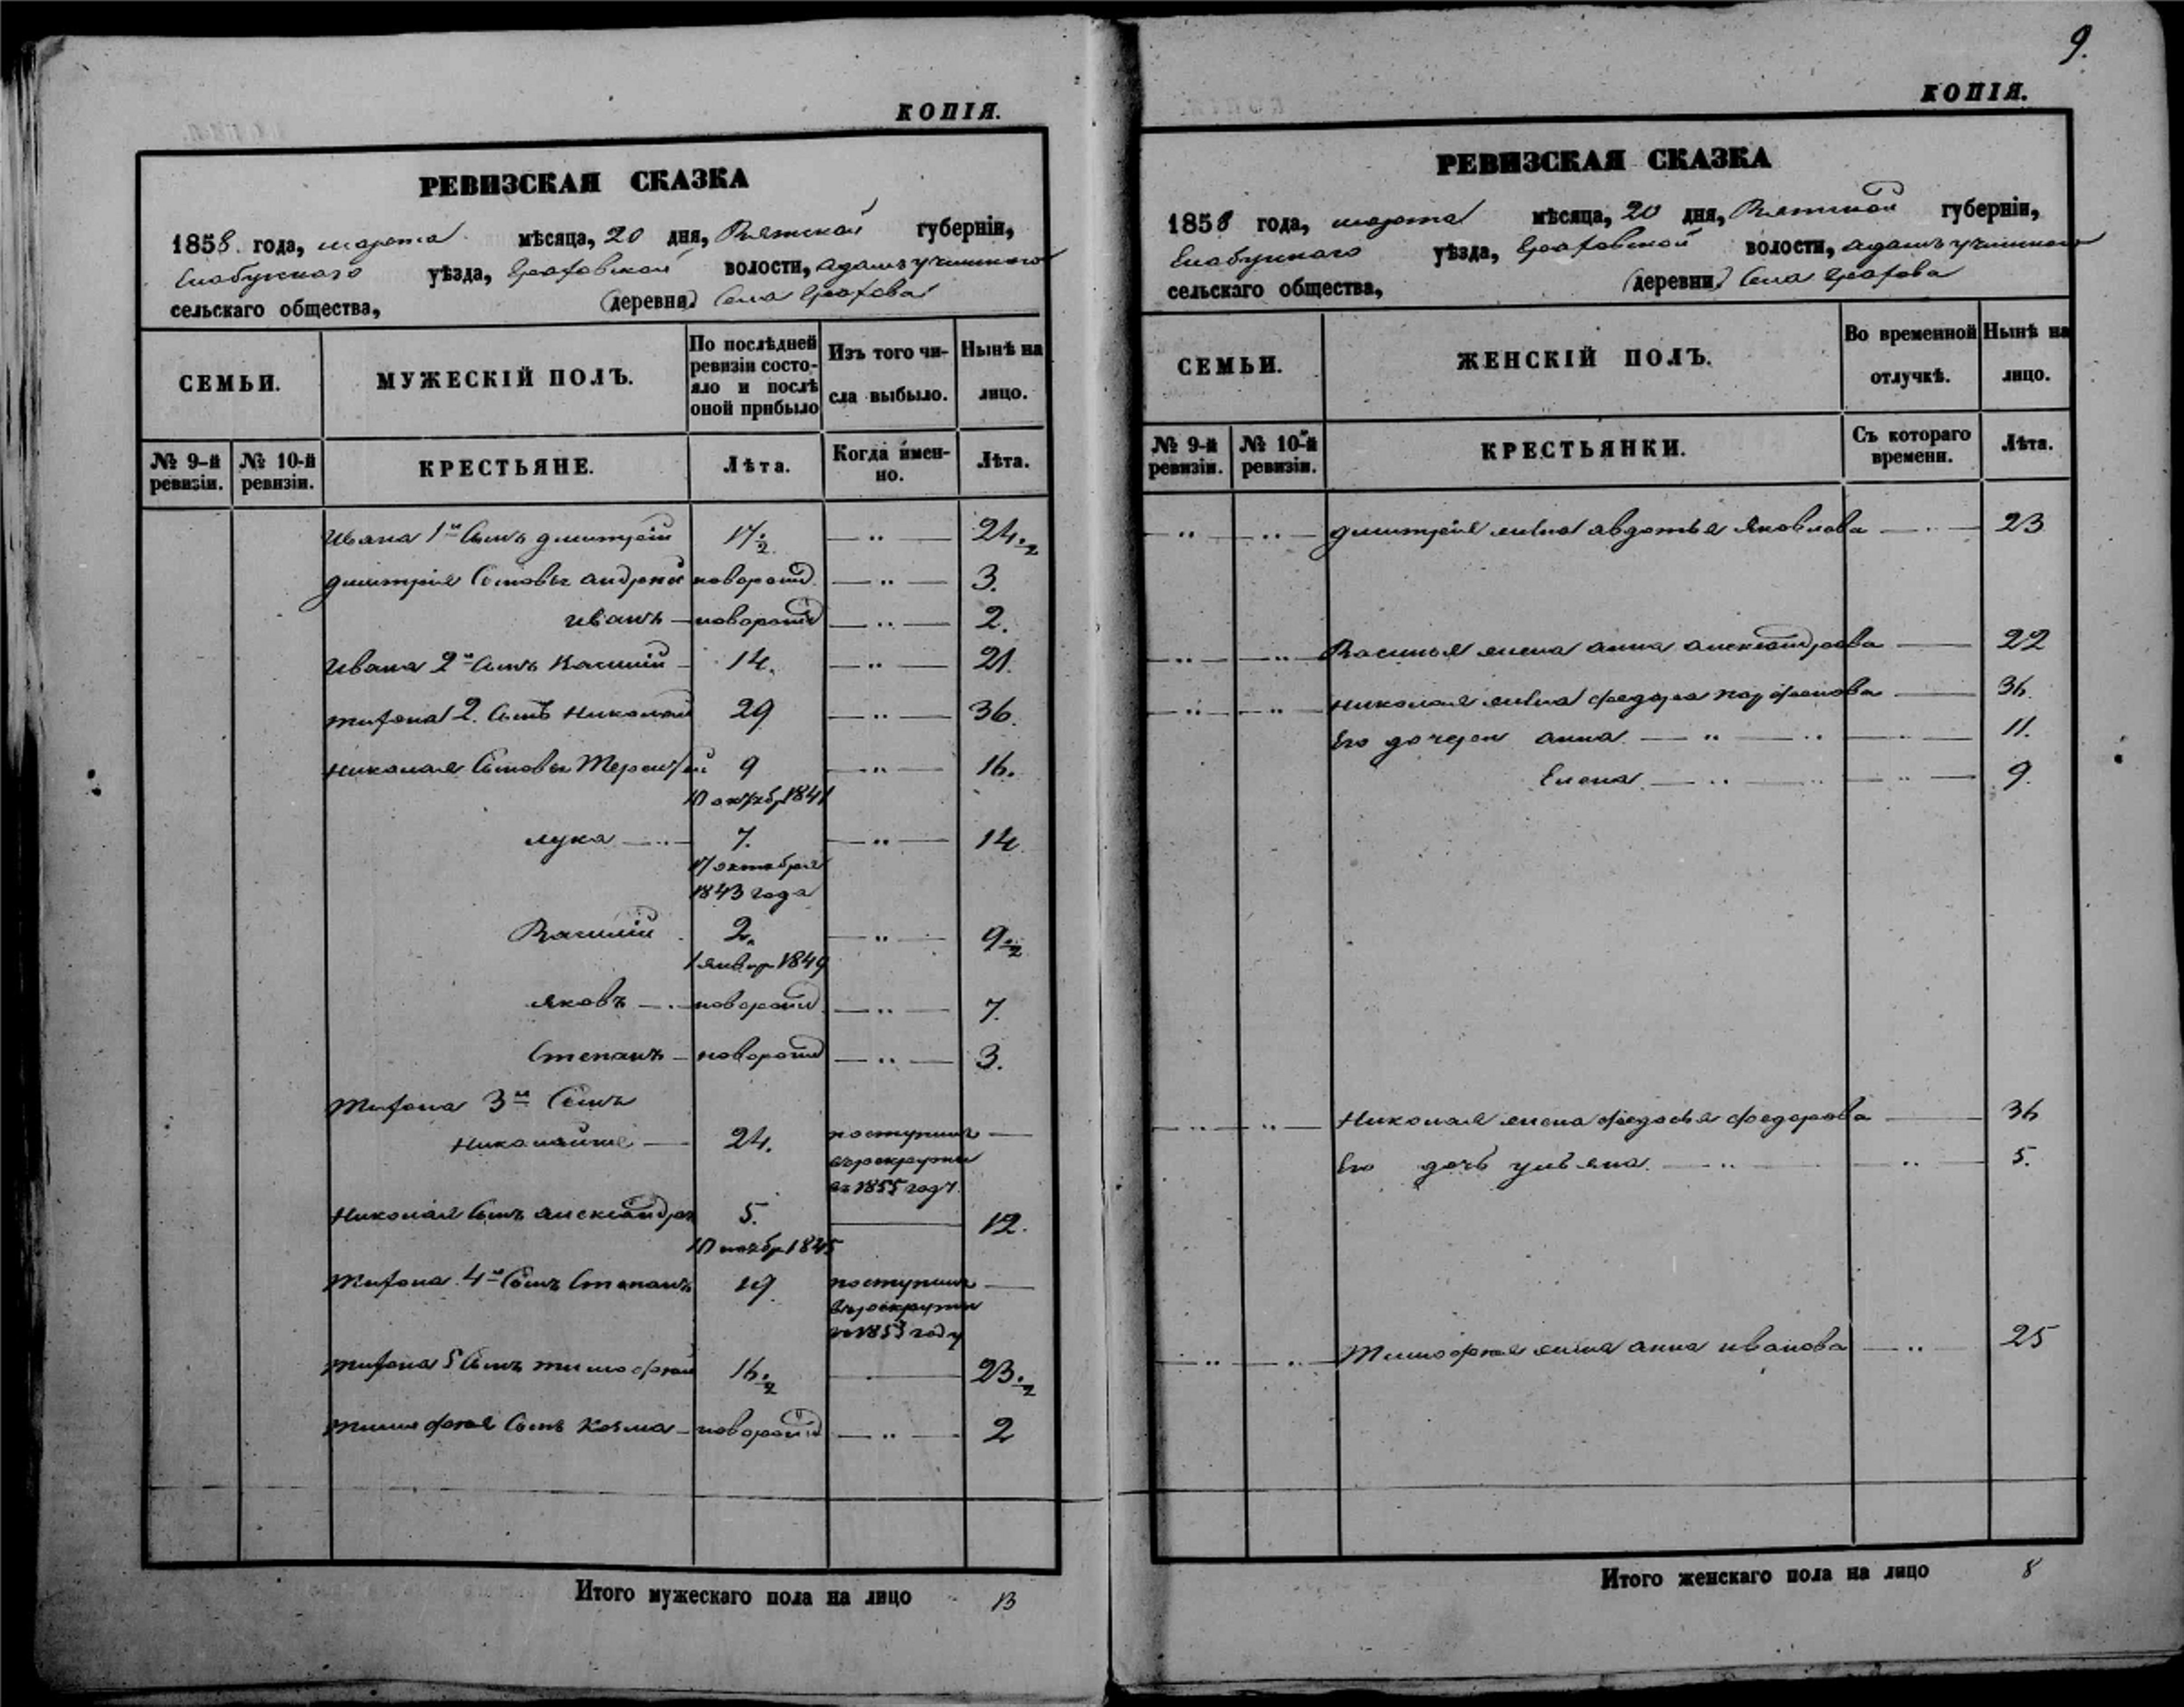 9.
КОПІЯ.
РЕВИЗСКАЯ СКАЗКА
1858 года, марта мѣсяца, 20 дня, Вятской губерніи,
Елабужскаго уѣзда, Граховской волости, адамъучинскаго
сельскаго общества, (деревня) Села Грахова
СЕМЬИ.
МУЖЕСКІЙ ПОЛЪ.
По послѣдней ревизіи состояло и послѣ оной прибыло
Изъ того числа выбыло.
Нынѣ на лицо.
№ 9-й ревизіи.
№ 10-й ревизіи.
КРЕСТЬЯНЕ.
Лѣта.
Когда именно.
Лѣта.
Ивана 1й Сынъ дмитрій 17½ — „ — 24½
дмитрія Сыновья андрей новорожд — „ — 3.
иванъ — новорожд — „ — 2.
Ивана 2й Сынъ Василій 14. — „ — 21.
2. Сынъ Николай 29 — „ — 36.
Николая Сыновья Терентій 9 — „ — 16.
10 октябр 1841
лука — 7. — „ — 14
17 октября
1843 года
Василій 2. — „ — 9½
1 январ 1849
яковъ — новорожд — „ — 7.
Степанъ — новорожд — „ — 3.
3й Сынъ
Николай же — 24. поступилъ —
въ рекруты
въ 1855 году.
Николая Сынъ александръ 5. — 12.
10 ноябр 1845
4й Сынъ Степанъ 19 поступилъ —
въ рекруты
въ 1853 году
5 Сынъ тимофей 16½ — 23½
тимофея Сынъ Козма — новорожд — „ — 2
Итого мужескаго пола на лицо 13
КОПІЯ.
РЕВИЗСКАЯ СКАЗКА
1858 года, марта мѣсяца, 20 дня, Вятской губерніи,
Елабужскаго уѣзда, Граховской волости, адамъучинскаго
сельскаго общества, (деревни) Села Грахова
СЕМЬИ.
ЖЕНСКІЙ ПОЛЪ.
Во временной отлучкѣ.
Нынѣ на лицо.
№ 9-й ревизіи.
№ 10-й ревизіи.
КРЕСТЬЯНКИ.
Съ котораго времени.
Лѣта.
— „ — „ — дмитрія жена авдотья Яковлова — „ — 23
— „ — „ — Василья жена анна александрова — 22
— „ — „ — Николая жена федора парфенова — 36.
Его дочери анна — „ — „ — 11.
Елена — „ — „ — 9.
— „ — „ — Николая жена федосья федорова — 36
Его дочь ульяна. — „ — „ — 5.
— „ — „ — Тимофея жена анна иванова — „ — 25
Итого женскаго пола на лицо 8